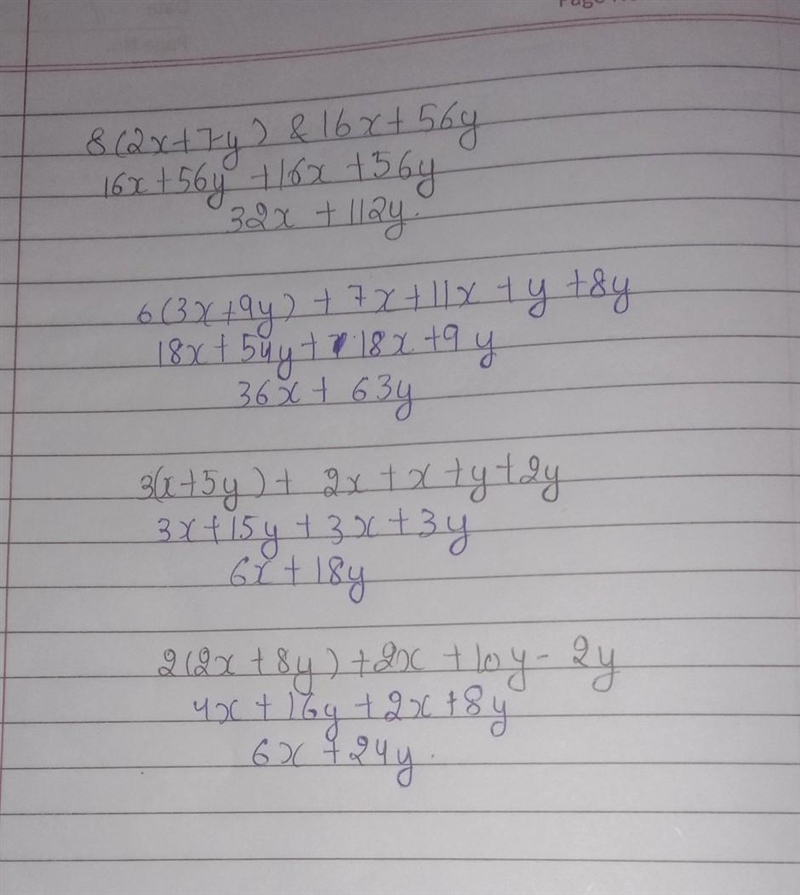 8(2x+7y) & 16x+56y
16x+56y +16x +56y
32x +112y.
6(3x+9y) + 7x+11x +y +8y
18x+54y+18x+9y
36x+ 63y
3(x+5y)+ 2x+x+y+2y
3x+15y+3x+3y
6x+18y
2(2x+8y)+2x +10y- 2y
4x+16y+2x+8y
6x +24y.